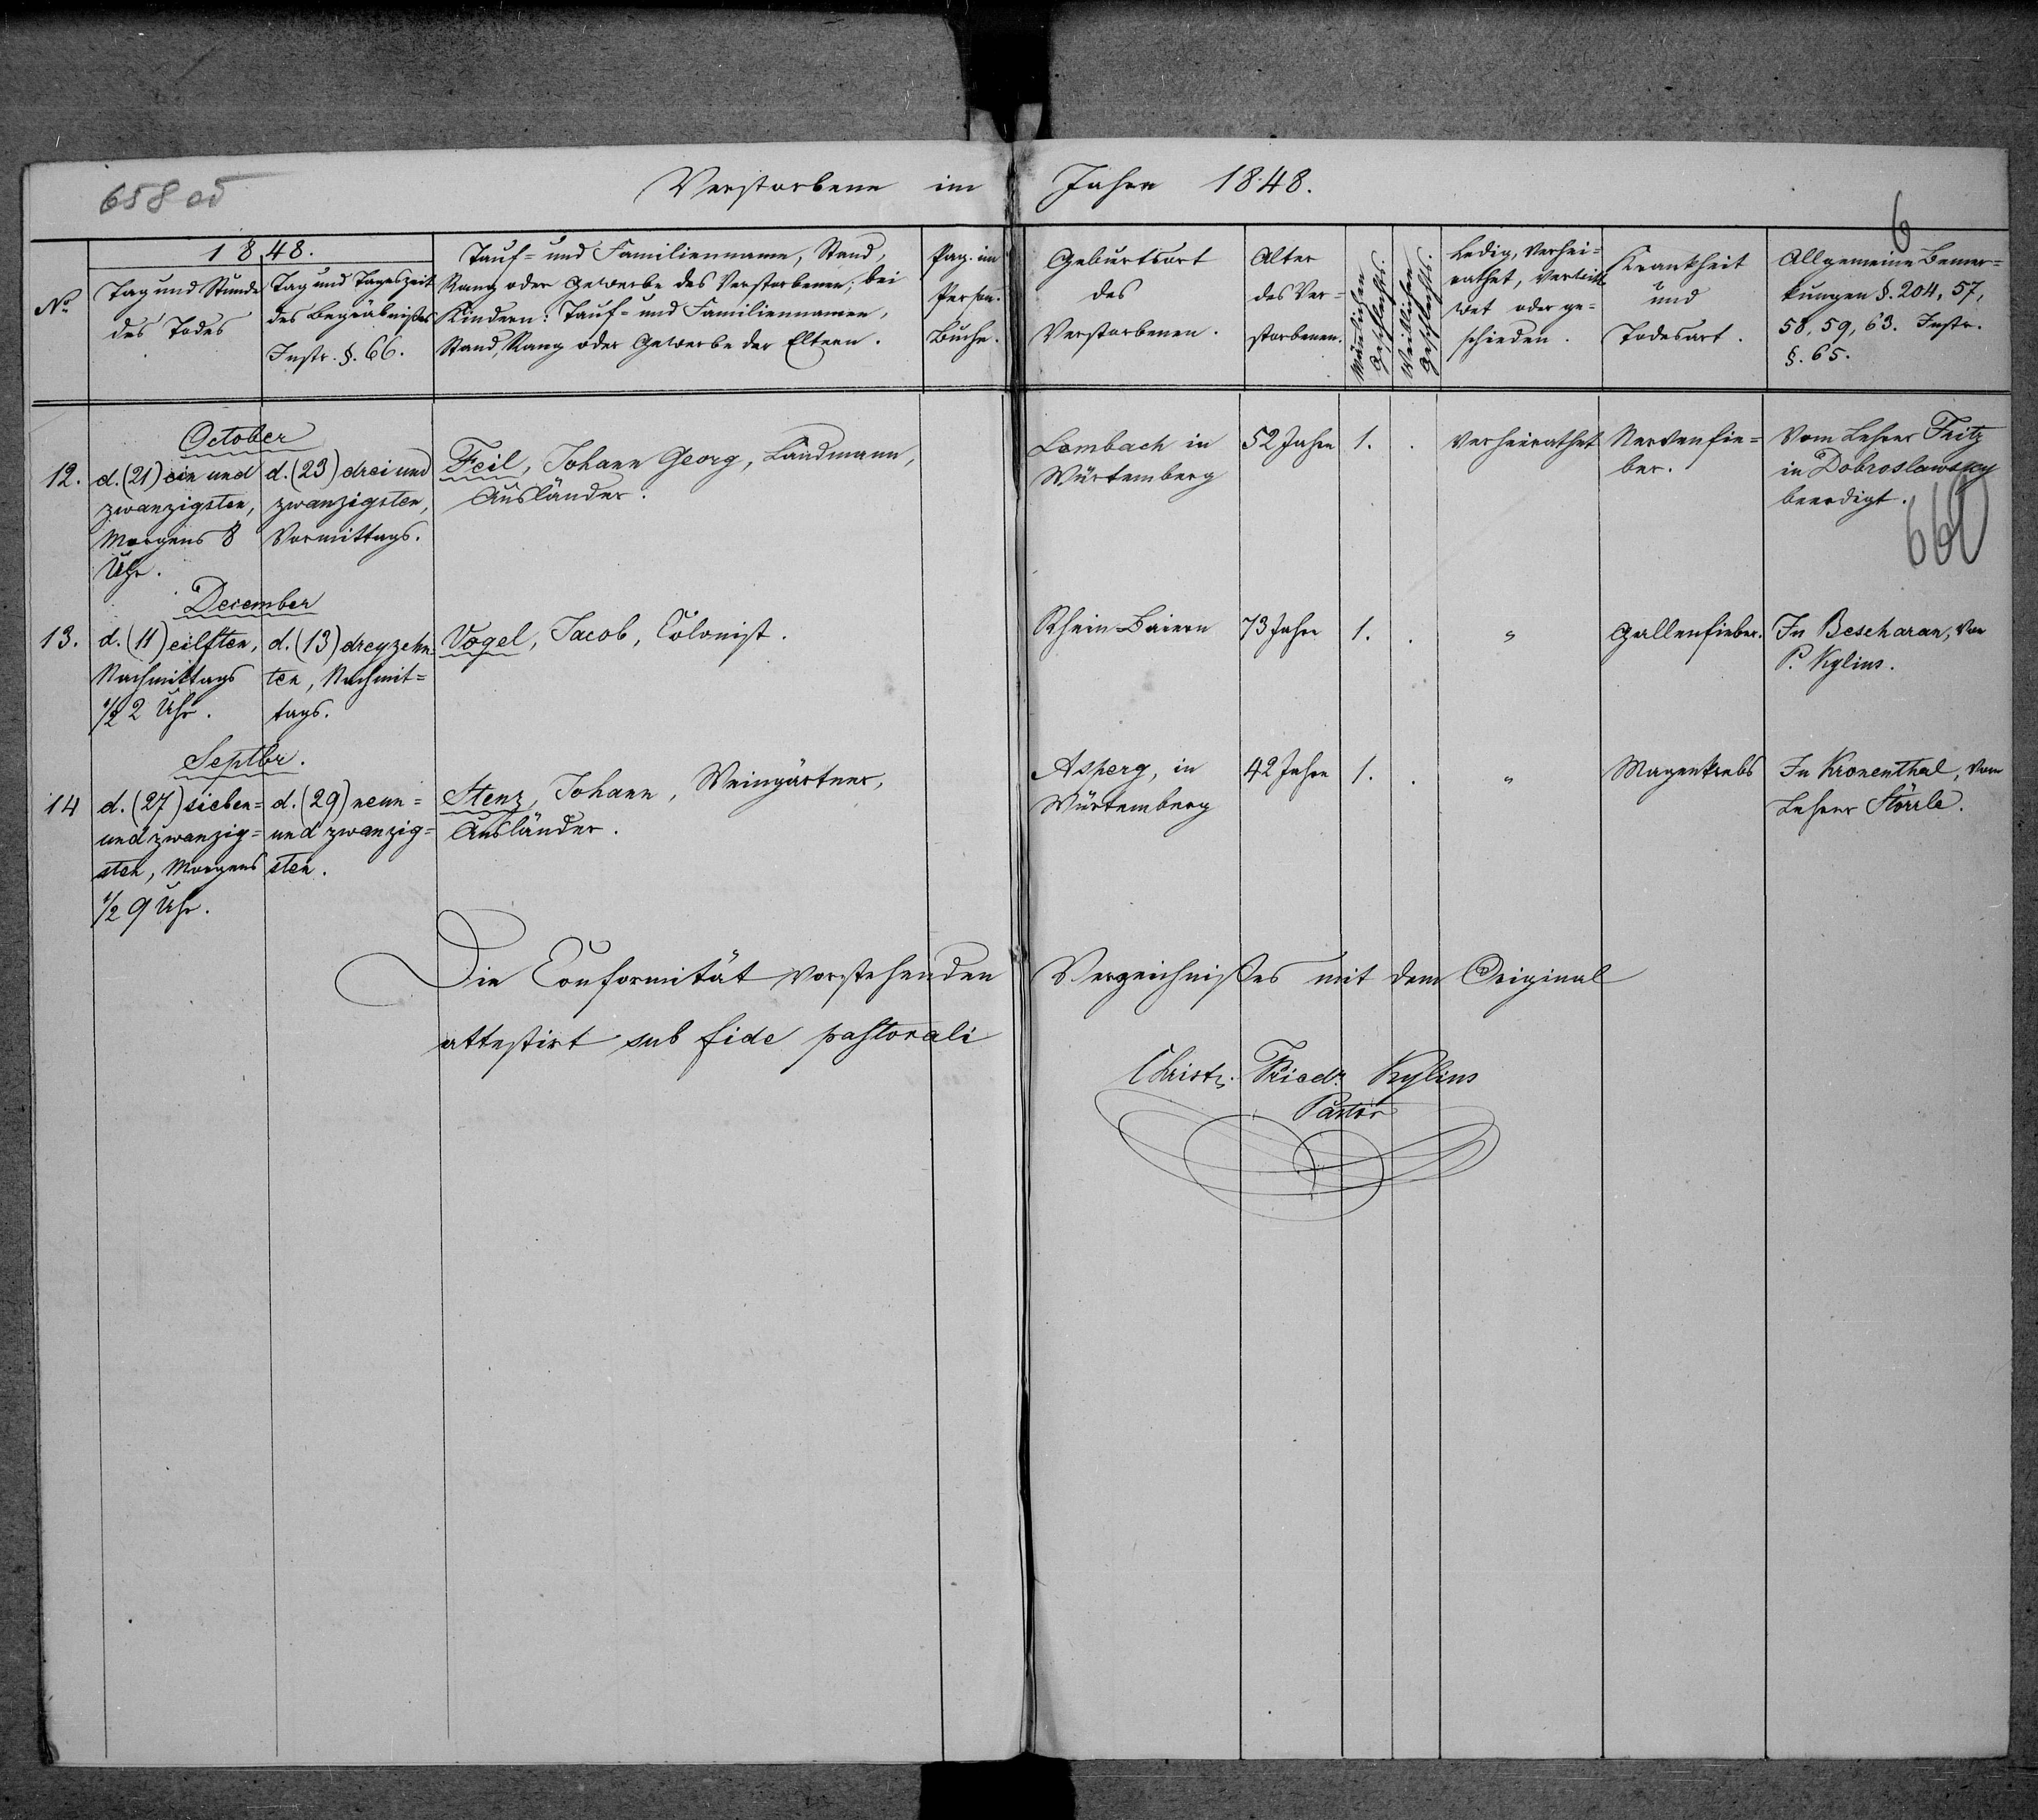 658 об
Verstorbene im Jahre 1848.
6
No.
1848.
Tag und Stunde
des Todes
Tag und Tageszeit
des Begräbnißes
Instr. §. 66.
Tauf= und Familienname, Stand,
Rang oder Gewerbe des Verstorbenen; bei
Kindern: Tauf= und Familiennamen,
Stand, Rang oder Gewerbe der Eltern.
Pag. im
Person.
Buche.
Geburtsort
des
Verstorbenen.
Alter
des Ver=
storbenen.
Männlichen
Geschlechts.
Weiblichen
Geschlechts.
Ledig, Verhei=
rathet, Verwitt=
wet oder ge=
schieden.
Krankheit
und
Todesart.
Allgemeine Bemer=
kungen §. 204, 57,
58, 59, 63. Instr.
§. 65.
October
12.
d. (21) ein und
zwanzigsten,
Morgens 8
Uhr.
d. (23) drei und
zwanzigsten,
Vormittags.
Feil, Johann Georg, Landmann,
Ausländer.
Lombach in
Würtemberg
52 Jahre
1.
.
Verheirathet
Nervenfie=
ber.
Vom Lehrer Fritz
in Dobroslawsky
beerdigt.
660
December
13.
d. (11) eilften,
Nachmittags
1/2 2 Uhr.
d. (13) dreyzehn
ten, Nachmit=
tags.
Vogel, Jacob, Colonist.
Rhein Baiern
73 Jahre
1.
.
"
Gallenfieber.
In Bescharan, von
P. Kylius.
Septbr.
14
d. (27) sieben=
und zwanzig=
sten, Morgens
1/2 9 Uhr.
d. (29) neun=
und zwanzig=
sten.
Stenz, Johann, Weingärtner,
Ausländer.
Asperg, in
Würtemberg
42 Jahre
1.
.
"
Magenkrebs
In Kronenthal, vom
Lehrer Störrle.
Die Conformität vorstehenden Verzeichnißes mit dem Original
attestirt sub fide pastorali
Christ. Friedr. Kylius
Pastor